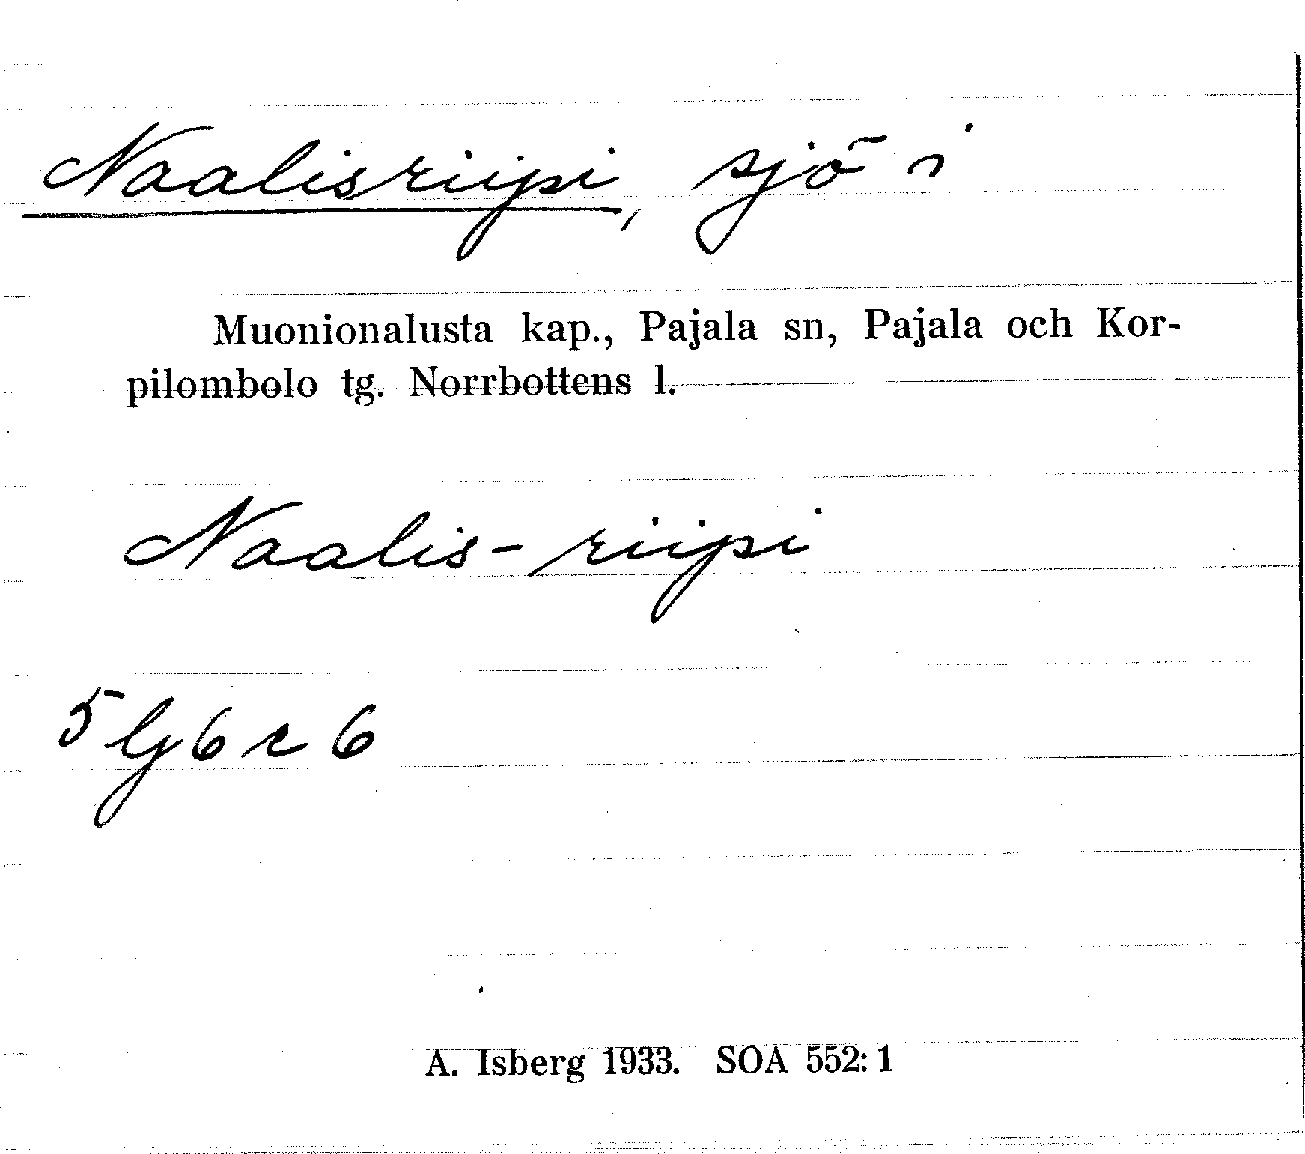 Naalisriipi, sjö i
Muonionalusta kap., Pajala sn, Pajala och Kor-
pilombolo tg. Norrbottens l.
Naalis-riipi
A. Isberg 1933. SOA 552:1